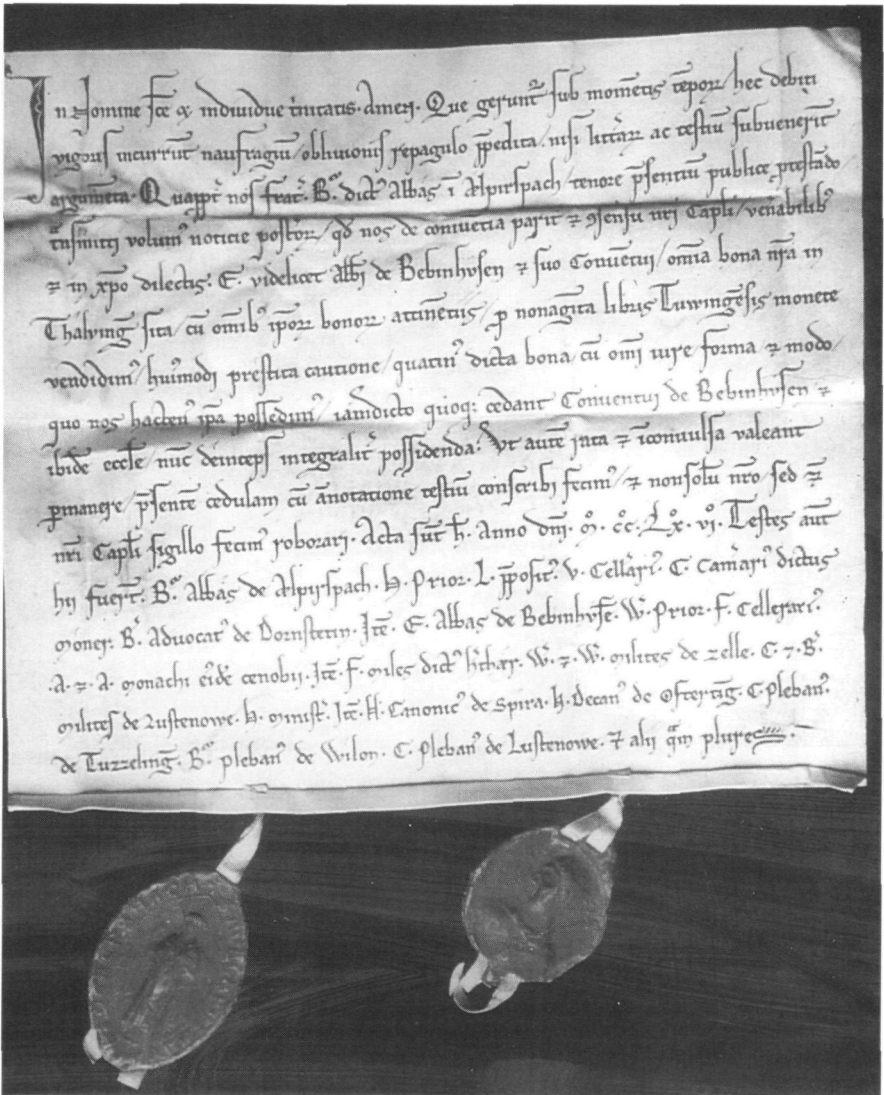 In Nomine sce & individue t̾nitatis. Amen. Que gerunt᷑ sub mom̅etis te̅poꝝ / hec debiti
vigoris incurru̅t naufragiu̅ / oblivionis repagulo p̅pedita / nisi litt̾aꝝ ac testiu̅ subuenerit̅
argum̅eta. Quapp̅t nos frat̾. B. dict᷒ Abbas i̅ Alpirspach / tenore p̅sentiu̅ publice p̅testa̅do /
t̅nsmitti volum᷒ noticie post̾oꝝ / qd̾ nos de coniuetia parit̾ ⁊ ꝯsensu nr̅i Capl̅i / ven̾abilib᷒
⁊ in xp̅o dilectis. E. videlicet Abb̅i de Bebinhvsen ⁊ suo Conue̅tui / om̅ia bona nr̅a in
Thalving̅ sita / cu̅ om̅ib᷒ ip̅oꝝ bonoꝝ attine̅tiis / p̅ nonagi̅ta libris Tuwinge̅sis monete
vendidim᷒ / hui᷒modi prestita cautione / quatin᷒ dicta bona / cu̅ om̅i iure / forma ⁊ modo /
quo nos hacten᷒ ip̅a possedim᷒ / ia̅dicto quoq; cedant Conuentui de Bebinhvsen ⁊
ibide̅ eccl̅e / nu̅c deinceps integralit̾ possidenda. Vt aute̅ rata ⁊ i̅conuulsa valeant
ꝑmanere / p̅sente̅ cedulam cu̅ a̅notatione testiu̅ conscribi fecim᷒ / ⁊ nonsolu̅ nr̅o / sed ⁊
nr̅i Capl̅i sigillo fecim᷒ roborari. Acta su̅t h̅. Anno dn̅i. M̊. c̊c. Lx̊. vı̊. Testes au̅t
hii fuer̅t. B. Abbas de Alpirspach. H. Prior. L. p̅posit᷒. V. Cell̾ari᷒. C. Cam̾ari᷒ dictus
Moner. B. Advocat᷒ de Dornstetin. Ite̅. E. Abbas de Bebinhvse̅. W. Prior. F. Cellerari᷒.
.A. ⁊. A. Monachi ei᷒de̅ cenobii. Ite̅. F. miles dict᷒ W. ⁊. W. milites de zelle. C. ⁊. B.
milites de Lustenowe. H. minist̾. Ite̅. H. Canonic᷒ de Spira. H. Decan᷒ de Ofterti̅g. C. Pleban᷒
de Tuzzeling̅. B. pleban᷒ de Wilon. C. Pleban᷒ de Lustenowe. ⁊ alii qa̅m plures.